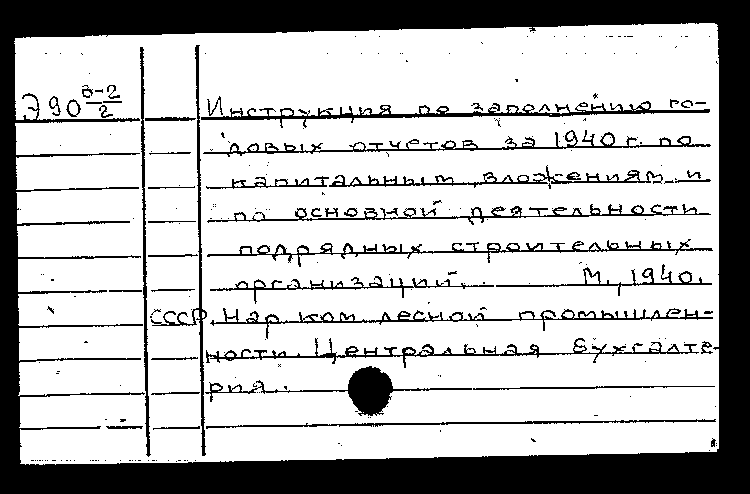 Э90 в-2/2
Инструкция по заполнению го-
довых отчетов за 1940 г. по
капитальным вложениям и
по основной деятельности
подрядных строительных
организаций. М., 1940.
СССР. Нар. ком. лесной промышлен-
ности. Центральная бухгалте-
рия.